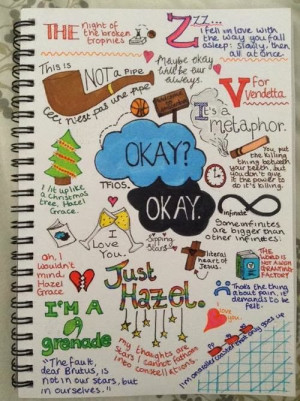 THE night of
the broken
trophies
ZZZ...
I fell in love with
the way you fall
asleep: slowly, then
all at once.
THIS IS
NOT a PIPE
Ceci n'est pas une pipe
Maybe okay
will be our
always.
V for
Vendetta
It's a
metaphor.
You put
the killing
thing between
your teeth, but
you don't give
it the power to
do its killing.
OKAY?
TFIOS.
OKAY.
I lit up like
a christmas
tree, Hazel
Grace.
I
Love
You.
Sipping
Stars
infinite
Some infinites
are bigger than
other infinites.
literal
heart of
Jesus.
THE WORLD
IS NOT
A WISH
GRANTING
FACTORY
Oh, I
wouldn't
mind,
Hazel
Grace
Just
Hazel.
That's the thing
about pain, it
demands to be
felt.
I'M A
grenade
my thoughts are
stars I can't fathom
into constellations.
"The fault,
dear Brutus, is
not in our stars, but
in ourselves."
I'm on a roller coaster that only goes up